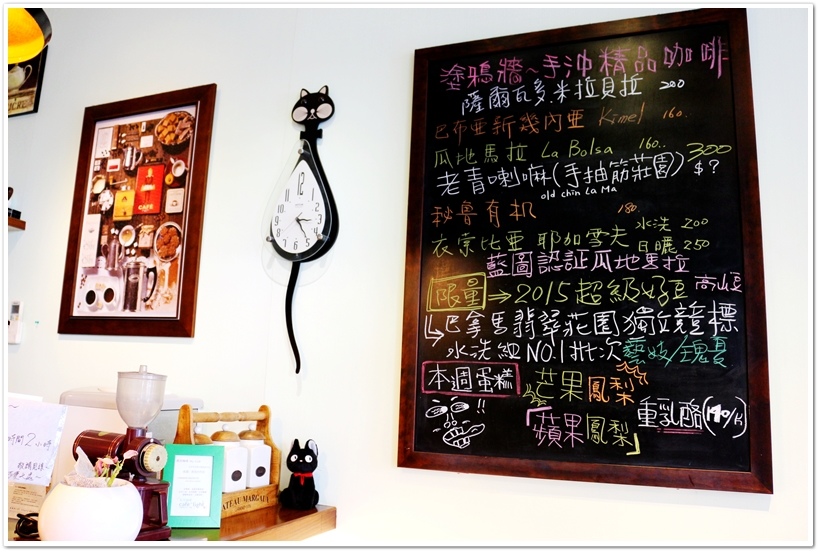 塗鴉牆~手沖精品咖啡
薩爾瓦多.米拉貝拉 200
巴布亞新幾內亞 Kimel 160.
瓜地馬拉 La Bolsa 160..
老青喇嘛(手抽筋莊園) 300 $?
old chin La Ma
秘魯有机 180.
衣索比亞 耶加雪夫 水洗 200
日曬 250
藍圖認証瓜地馬拉 高山豆
限量→2015超級好豆
巴拿馬翡翠莊園獨立競標
水洗組NO.1批次 藝妓/瑰夏
本週蛋糕 芒果鳳梨
!!
「蘋果鳳梨」
重乳酪(140/片)
時間2小時
CAFE
12
CHATEAU-MARGAUX